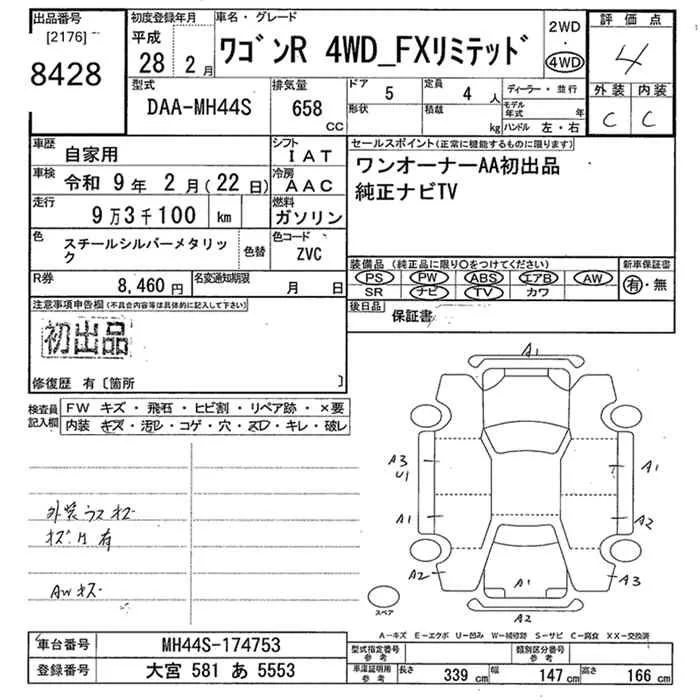 出品番号
[2176]
8428
初度登録年月
平成
28 2月
車名・グレード
ワゴンR 4WD_FXリミテッド
2WD
・
4WD
評価点
4
外装 内装
C C
型式
DAA-MH44S
排気量
658
CC
ドア 5
形状
定員 4 人
積載 kg
ディーラー・並行
モデル年式 年
ハンドル 左・右
車歴 自家用
シフト IAT
車検 令和 9年 2月(22日)
冷房 AAC
走行 9万3千100 km
燃料 ガソリン
色 スチールシルバーメタリック
色替
色コード ZVC
R券 8,460円
名変通知期限 月 日
セールスポイント(正常に機能するものに限ります)
ワンオーナーAA初出品
純正ナビTV
装備品 (純正品に限り○をつけてください)
新車保証書
PS PW ABS エアB AW
SR ナビ TV カワ
有・無
後日品 保証書
注意事項申告欄(不具合内容等は具体的に記入して下さい)
初出品
修復歴 有〔箇所 〕
検査員記入欄
FW キズ・飛石・ヒビ割・リペア跡・×要
内装 キズ・汚レ・コゲ・穴・スレ・キレ・破レ
外装ウスキズ
キズ凹有
AWキズ
A1
A3
U1
A1
A1
A2
A2
A1
A3
A2
スペア
A-キズ E-エクボ U-凹ミ W-補修跡 S-サビ C-腐食 XX-交換済
車台番号 MH44S-174753
登録番号 大宮 581 あ 5553
型式指定番号 参考
類別区分番号 参考
車庫証明用 参考
長さ 339 cm 幅 147 cm 高さ 166 cm